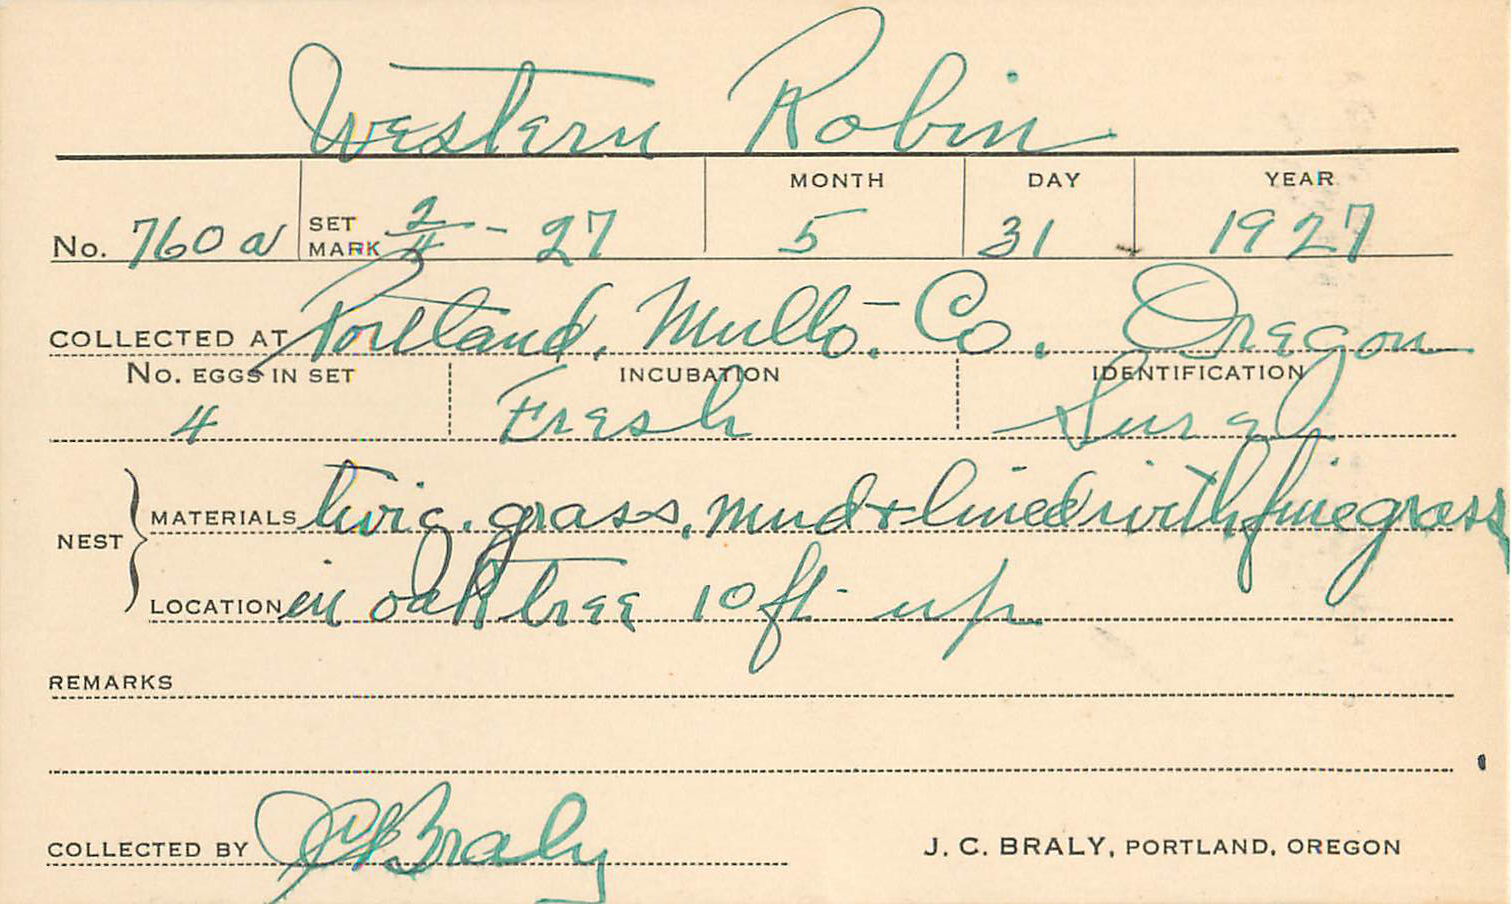 Western Robin
MONTH DAY YEAR
No. 760a SET MARK 2/4 - 27 5 31 1927
COLLECTED AT Portland, Multo. Co. Oregon
No. EGGS IN SET INCUBATION IDENTIFICATION
4 Fresh Sure
NEST
MATERIALS twig. grass, mud & lined with fine grass
LOCATION in oak tree 10 ft. up
REMARKS
COLLECTED BY JCBraly J. C. BRALY, PORTLAND, OREGON